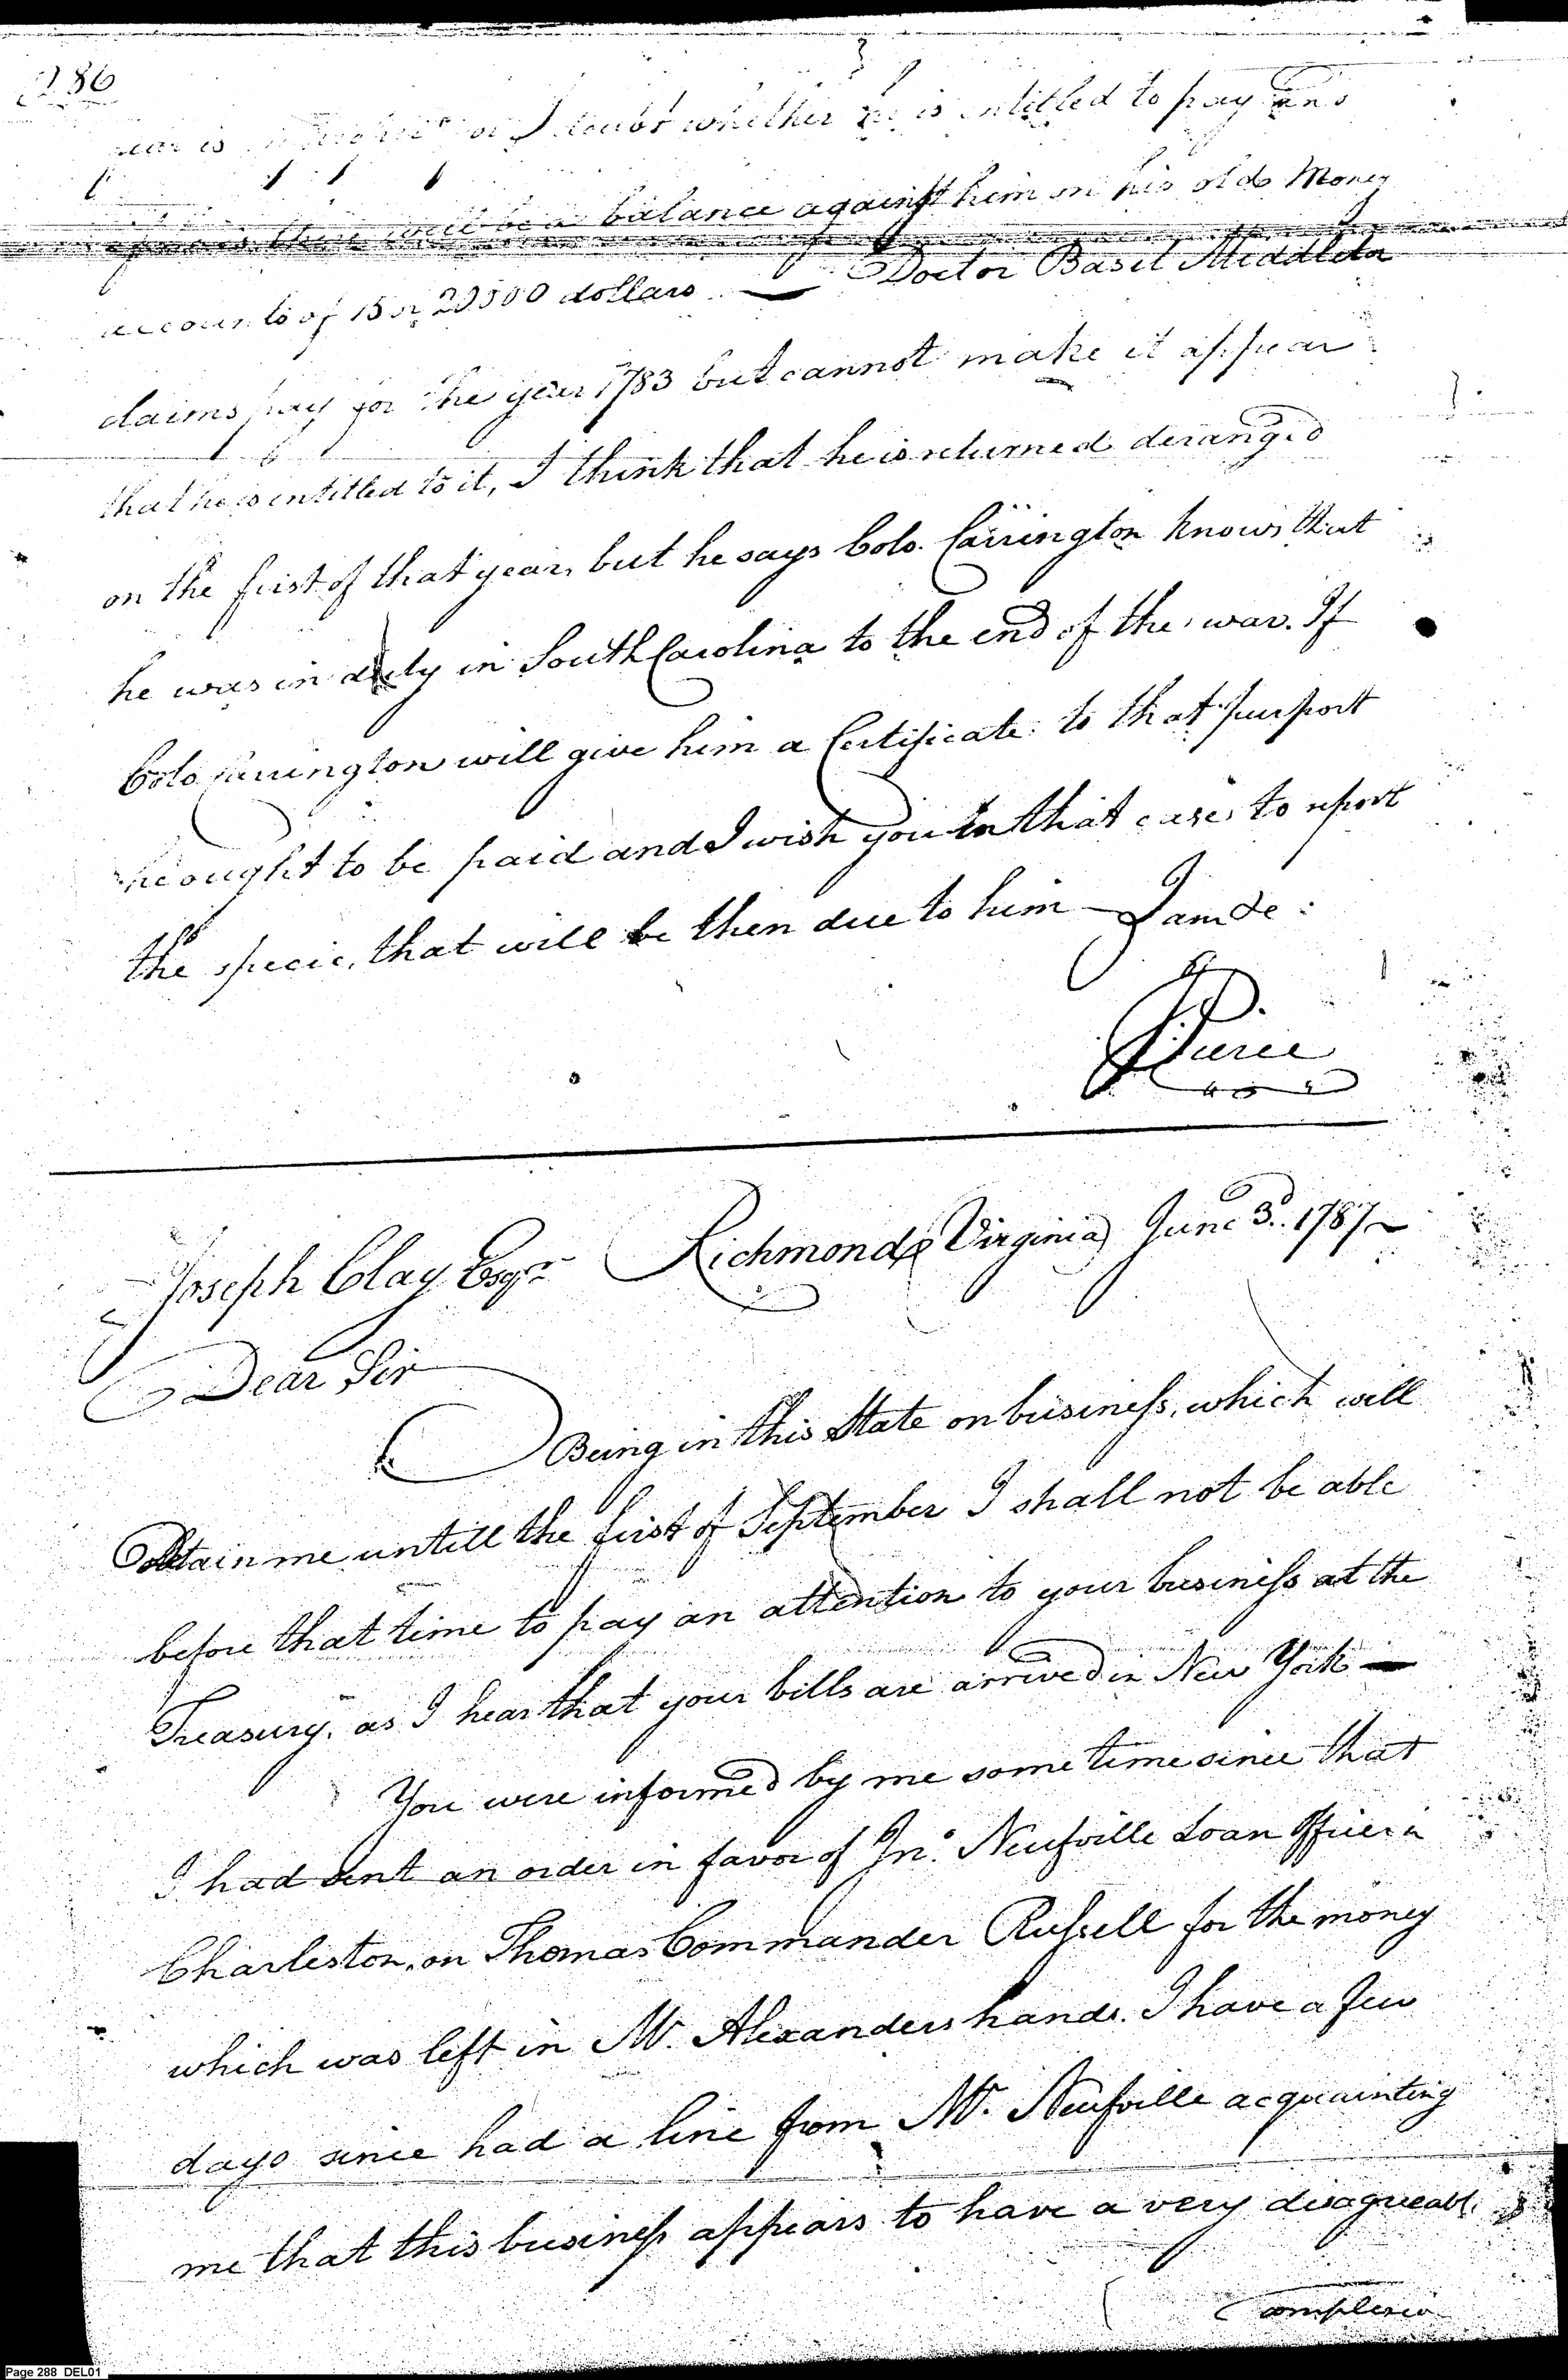 286
doubt whether he is intitled to pay and
there will be a balance against him on his old Money
accounts of 15 or 20,000 dollars — Doctor Basil Middleton
claims pay for the year 1783 but cannot make it appear
that he is intitled to it, I think that he is returned deranged
on the first of that year, but he says Colo. Carrington knows that
he was in duty in South Carolina to the end of the war. If
Colo Carrington will give him a Certificate to that purport
he ought to be paid and I wish you in that case, to report
the specie, that will be then due to him — I am &c:
J. Pierce
Joseph Clay Esqr. Richmond (Virginia) June 3d. 1787 —
Dear Sir
Being in this State on business, which will
detain me untill the first of September I shall not be able
before that time to pay an attention to your business at the
Treasury, as I hear that your bills are arrived in New York —
You were informed by me some time since that
I had sent an order in favor of Jno. Neufville Loan Officer in
Charleston, on Thomas Commander Russell for the money
which was left in Mr. Alexanders hands. I have a few
days since had a line from Mr. Neufville acquainting
me that this business appears to have a very disagreeable
complexion
Page 288 DEL01